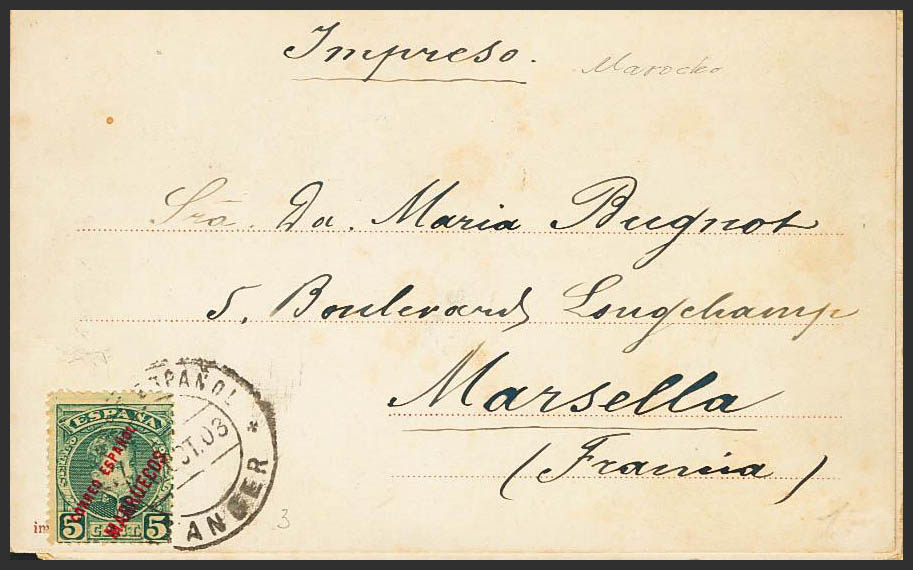 Impreso.
Marocko
Sra. Da. Maria Bugnot
5, Boulevard Longchamp
Marsella
(Francia)
ESPAÑOL
OCT.03
TANGER *
ESPAÑA
CORREO ESPAÑOL
MARRUECOS
5 CENT. 5
3
im